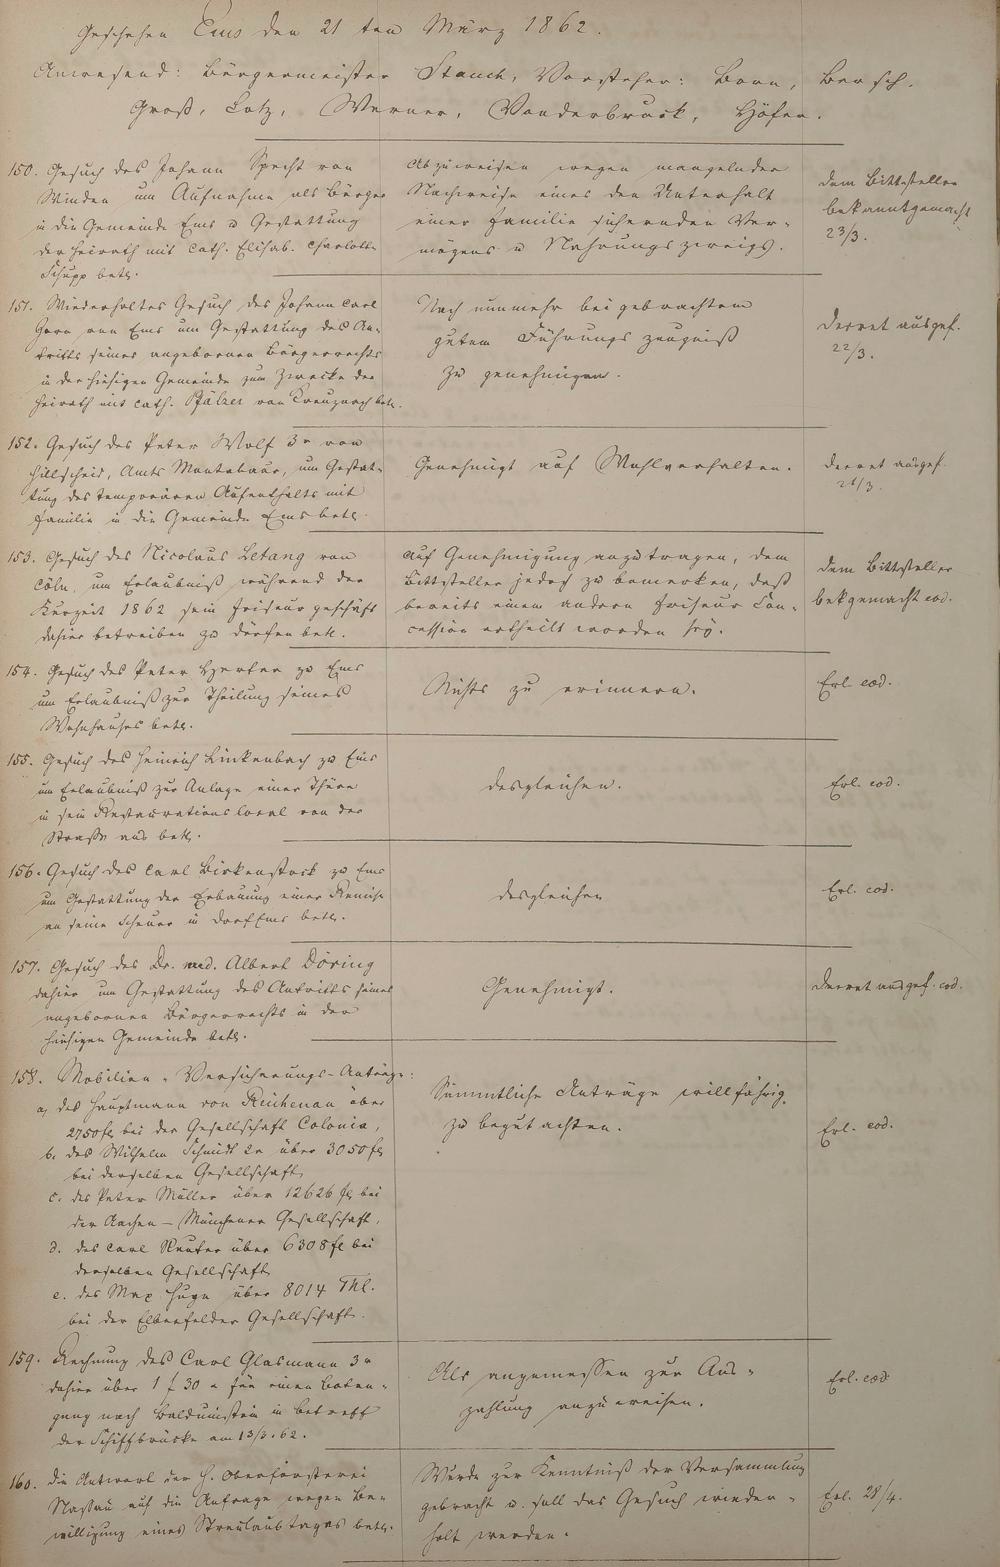 Geschehen Ems den 21 ten März 1862.
Anwesend: Bürgermeister Stauch, Vorsteher: Born, Bersch,
Groß, Lotz, Werner, Vonderbruck, Höfer.
150. Gesuch des Johann Specht von
Winden um Aufnahme als Bürger
in die Gemeinde Ems u Gestattung
der Heirath mit Cath. Elisab. Charlotte
Schupp betr.
Abzuweisen wegen mangelnder
Nachweise eines den Unterhalt
einer Familie sichernden Ver-
mögens u Nahrungszweigs.
dem Bittsteller
bekanntgemacht
23/3.
151. Wiederholtes Gesuch des Johann Carl
von Ems um Gestattung des An-
tritts seines angebornen Bürgerrechts
in der hiesigen Gemeinde zum Zwecke der
Heirath mit Cath. Pfälzer von Kreuznach betr.
Nach nunmehr beigebrachtem
gutem Führungszeugniß
zu genehmigen.
Decret ausgef.
22/3.
152. Gesuch des Peter Wolf 3r von
Hillscheid, Amts Montabaur, um Gestat-
tung des temporären Aufenthalts mit
Familie in die Gemeinde Ems betr.
Genehmigt auf Wohlverhalten.
Decret ausgef.
153. Gesuch des Nicolaus Letang von
Cöln, um Erlaubniß während der
Kurzeit 1862 sein Friseurgeschäft
dahier betreiben zu dürfen betr.
Auf Genehmigung anzutragen, dem
Bittsteller jedoch zu bemerken, daß
bereits einem andern Friseur Con-
cession ertheilt worden sey.
dem Bittsteller
bekgemacht eod.
154. Gesuch des Peter Herfer zu Ems
um Erlaubniß zur Theilung seines
Wohnhauses betr.
Nichts zu erinnern.
Erl. eod.
155. Gesuch des Heinrich Linkenbach zu Ems
um Erlaubniß zur Anlage einer Thüre
in sein Restaurationslocal von der
Straße aus betr.
desgleichen.
Erl. eod.
156. Gesuch des Carl Birkenstock zu Ems
um Gestattung der Erbauung einer Remise
an seine Scheuer in Dorf Ems betr.
desgleichen
Erl. eod.
157. Gesuch des Dr. med. Albert Döring
dahier um Gestattung des Antritts seines
angebornen Bürgerrechts in der
hiesigen Gemeinde betr.
Genehmigt.
Decret ausgef. eod.
158. Mobilien-Versicherungs-Anträge:
a, des Hauptmann von Reichenau über
2750 fl bei der Gesellschaft Colonia,
b. des Wilhelm Schmidt 2r über 3050 fl
bei derselben Gesellschaft,
c. des Peter Müller über 12626 fl bei
der Aachen-Münchener Gesellschaft,
d. des Carl Reuter über 6308 fl bei
derselben Gesellschaft
e. des Max Huyn über 8014 Thl.
bei der Elberfelder Gesellschaft.
Sämmtliche Anträge willfährig
zu begutachten.
Erl. eod.
159. Rechnung des Carl Glasmann 3r
dahier über 1 f 30 x für einen Boten-
gang nach Balduinstein in betreff
der Schiffbrücke am 13/3. 62.
Als angemessen zur Aus-
zahlung anzuweisen.
Erl. eod
160. Die Antwort der H. Oberförsterei
Nassau auf die Anfrage wegen Be-
willigung eines Streulaubtages betr.
Wurde zur Kenntniß der Versammlung
gebracht u. soll das Gesuch wieder-
holt werden.
Erl. 28/4.